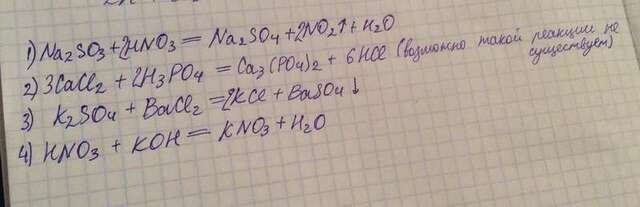 1) Na2SO3+2HNO3 = Na2SO4+2NO2↑+H2O
2) 3CaCl2 + 2H3PO4 = Ca3(PO4)2 + 6HCl (возможно такой реакции не существует)
3) K2SO4 + BaCl2 = 2KCl + BaSO4↓
4) HNO3 + KOH = KNO3 + H2O